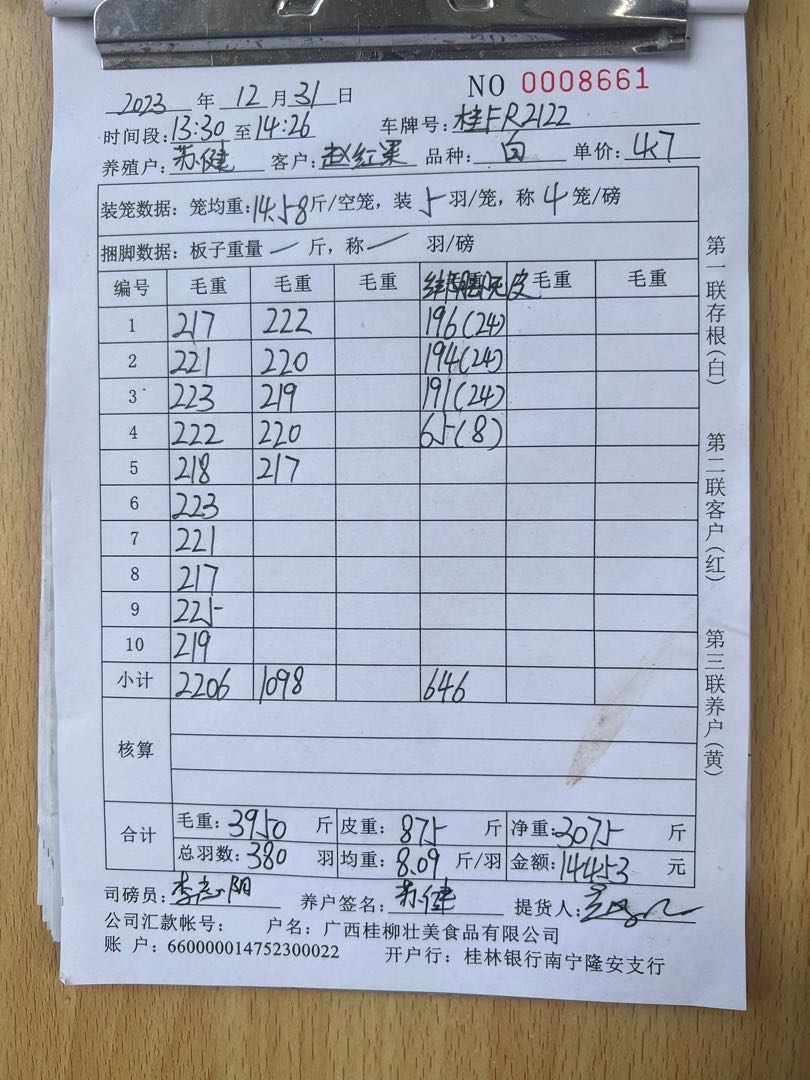 NO 0008661
2023 年 12 月 31 日
时间段: 13:30 至 14:26 车牌号: 桂FR2122
养殖户: 苏健 客户: 赵红果 品种: 白 单价: 4.7
装笼数据: 笼均重: 14.58 斤/空笼, 装 5 羽/笼, 称 4 笼/磅
捆脚数据: 板子重量 — 斤, 称 — 羽/磅
编号 毛重 毛重 毛重 毛重 毛重
1 217 222 196(24)
2 221 220 194(24)
3 223 219 191(24)
4 222 220 65(8)
5 218 217
6 223
7 221
8 217
9 225
10 219
小计 2206 1098 646
核算
合计 毛重: 3950 斤 皮重: 875 斤 净重: 3075 斤
总羽数: 380 羽 均重: 8.09 斤/羽 金额: 14453 元
司磅员: 李志阳 养户签名: 苏健 提货人:
公司汇款帐号: 户名: 广西桂柳壮美食品有限公司
账 户: 660000014752300022 开户行: 桂林银行南宁隆安支行
第一联存根(白)
第二联客户(红)
第三联养户(黄)